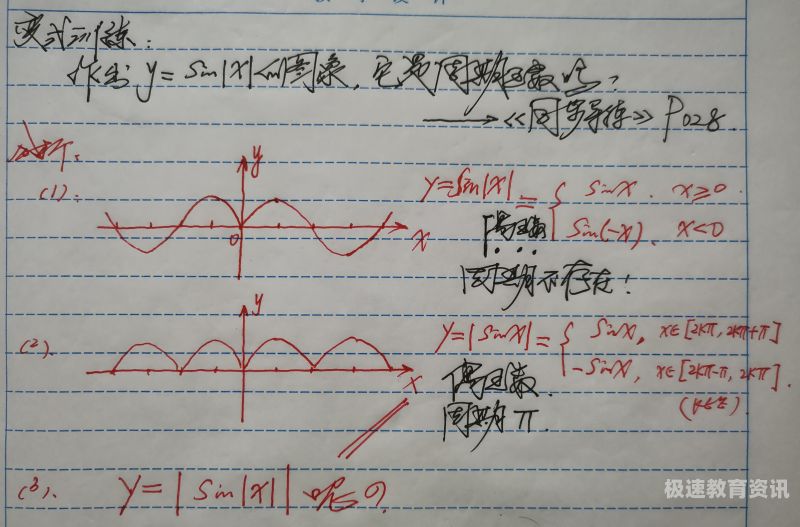 变式训练:
作出 y=Sin|x|的图象,它是周期函数吗?
→《同步导练》P028.
解析:
(1).
y
O
x
y=Sin|x|={ Sinx, x≥0.
Sin(-x), x<0
偶函数
周期不存在!
(2).
y
x
y=|Sinx|={ Sinx, x∈[2kπ, 2kπ+π]
-Sinx, x∈[2kπ-π, 2kπ].
(k∈Z)
偶函数.
周期π.
(3). y=|Sin|x||呢?
极速教育资讯